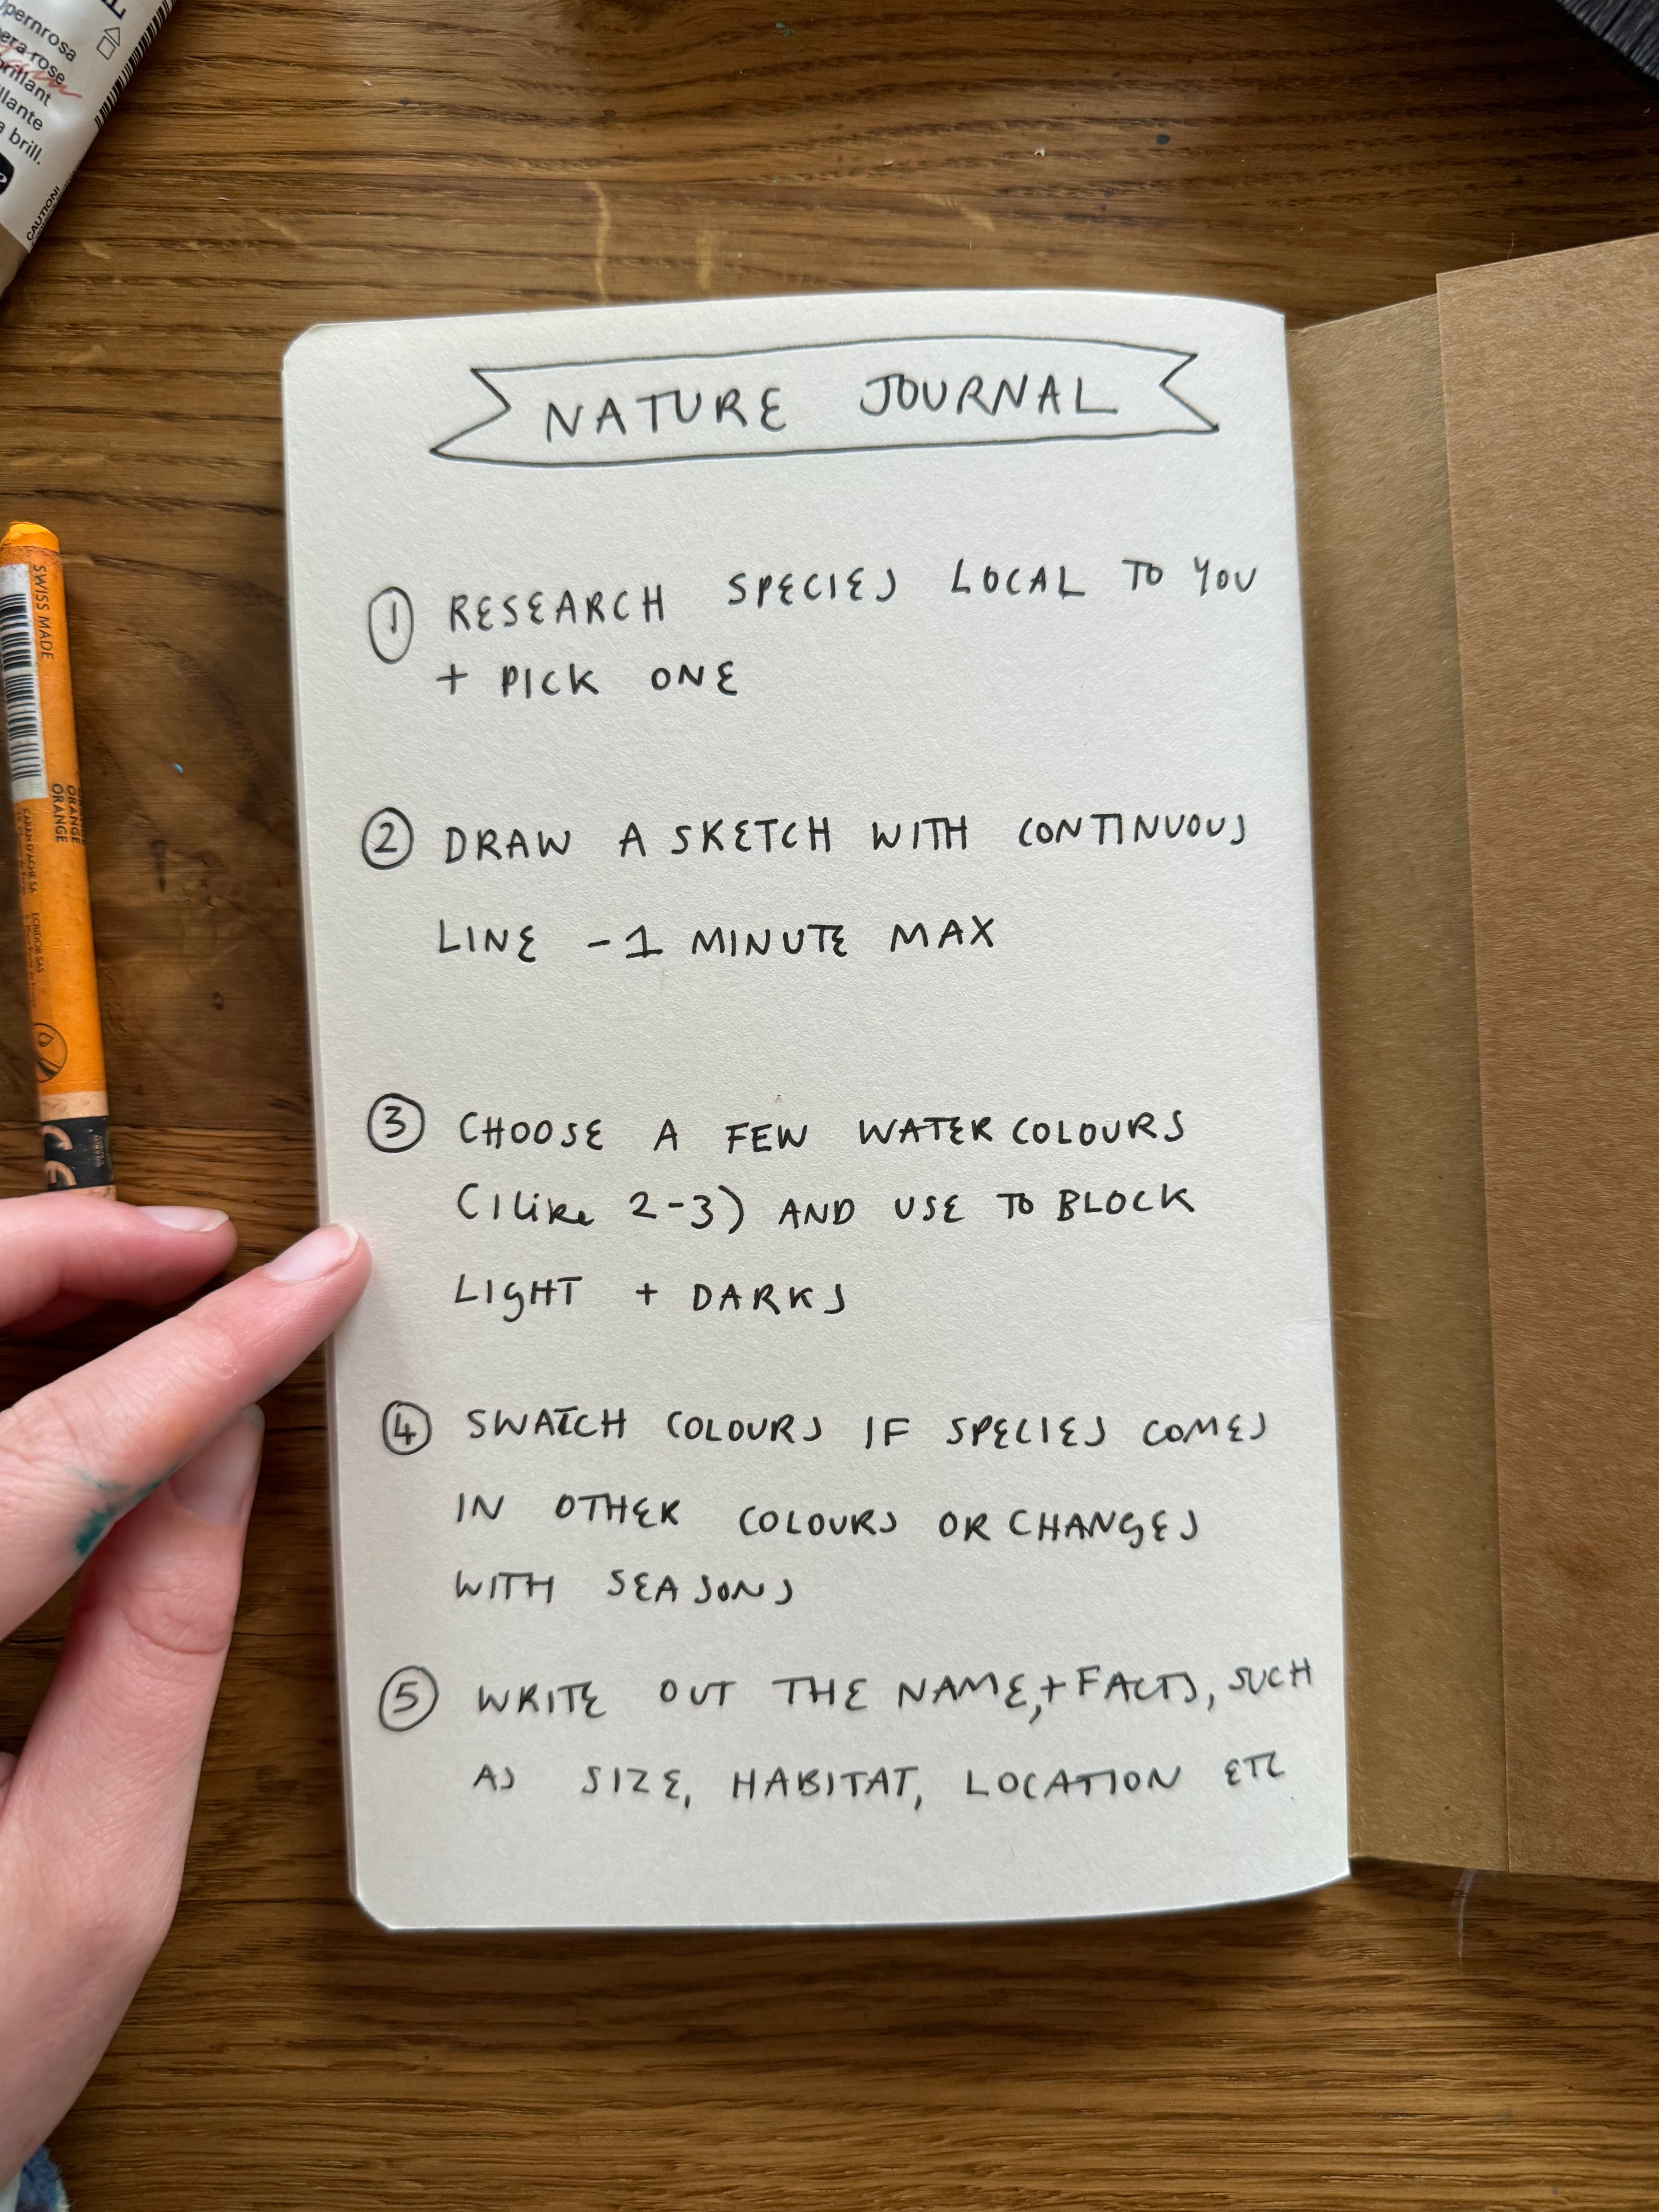 pernrosa
era rose
brillant
llante
a brill.
CAUTION!
SWISS MADE
ORANGE
ORANGE
CARAN D'ACHE SA
CE
NATURE JOURNAL
1 RESEARCH SPECIES LOCAL TO YOU
+ PICK ONE
2 DRAW A SKETCH WITH CONTINUOUS
LINE - 1 MINUTE MAX
3 CHOOSE A FEW WATERCOLOURS
(I like 2-3) AND USE TO BLOCK
LIGHT + DARKS
4 SWATCH COLOURS IF SPECIES COMES
IN OTHER COLOURS OR CHANGES
WITH SEASONS
5 WRITE OUT THE NAME, + FACTS, SUCH
AS SIZE, HABITAT, LOCATION ETC